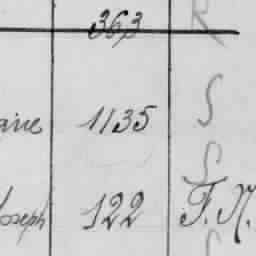 363 R
aire 1135 S
S
Joseph 122 F. N.